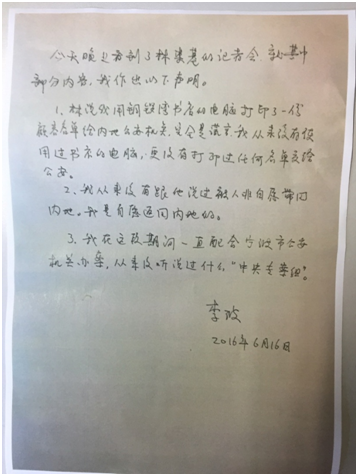 今天晚上看到了林荣基的记者会，就其中
部分内容，我作出以下声明。
1. 林说我用铜锣湾书店的电脑打印了一份
名单给内地公安机关，完全是谎言，我从来没有使
用过书店的电脑，更没有打印过任何名单交给
公安。
2. 我从来没有跟他说过被人非自愿带回
内地。我是自愿返回内地的。
3. 我在这段期间一直配合宁波市公安
机关办案，从来没听说过什么“中央专案组”。
李波
2016年6月16日